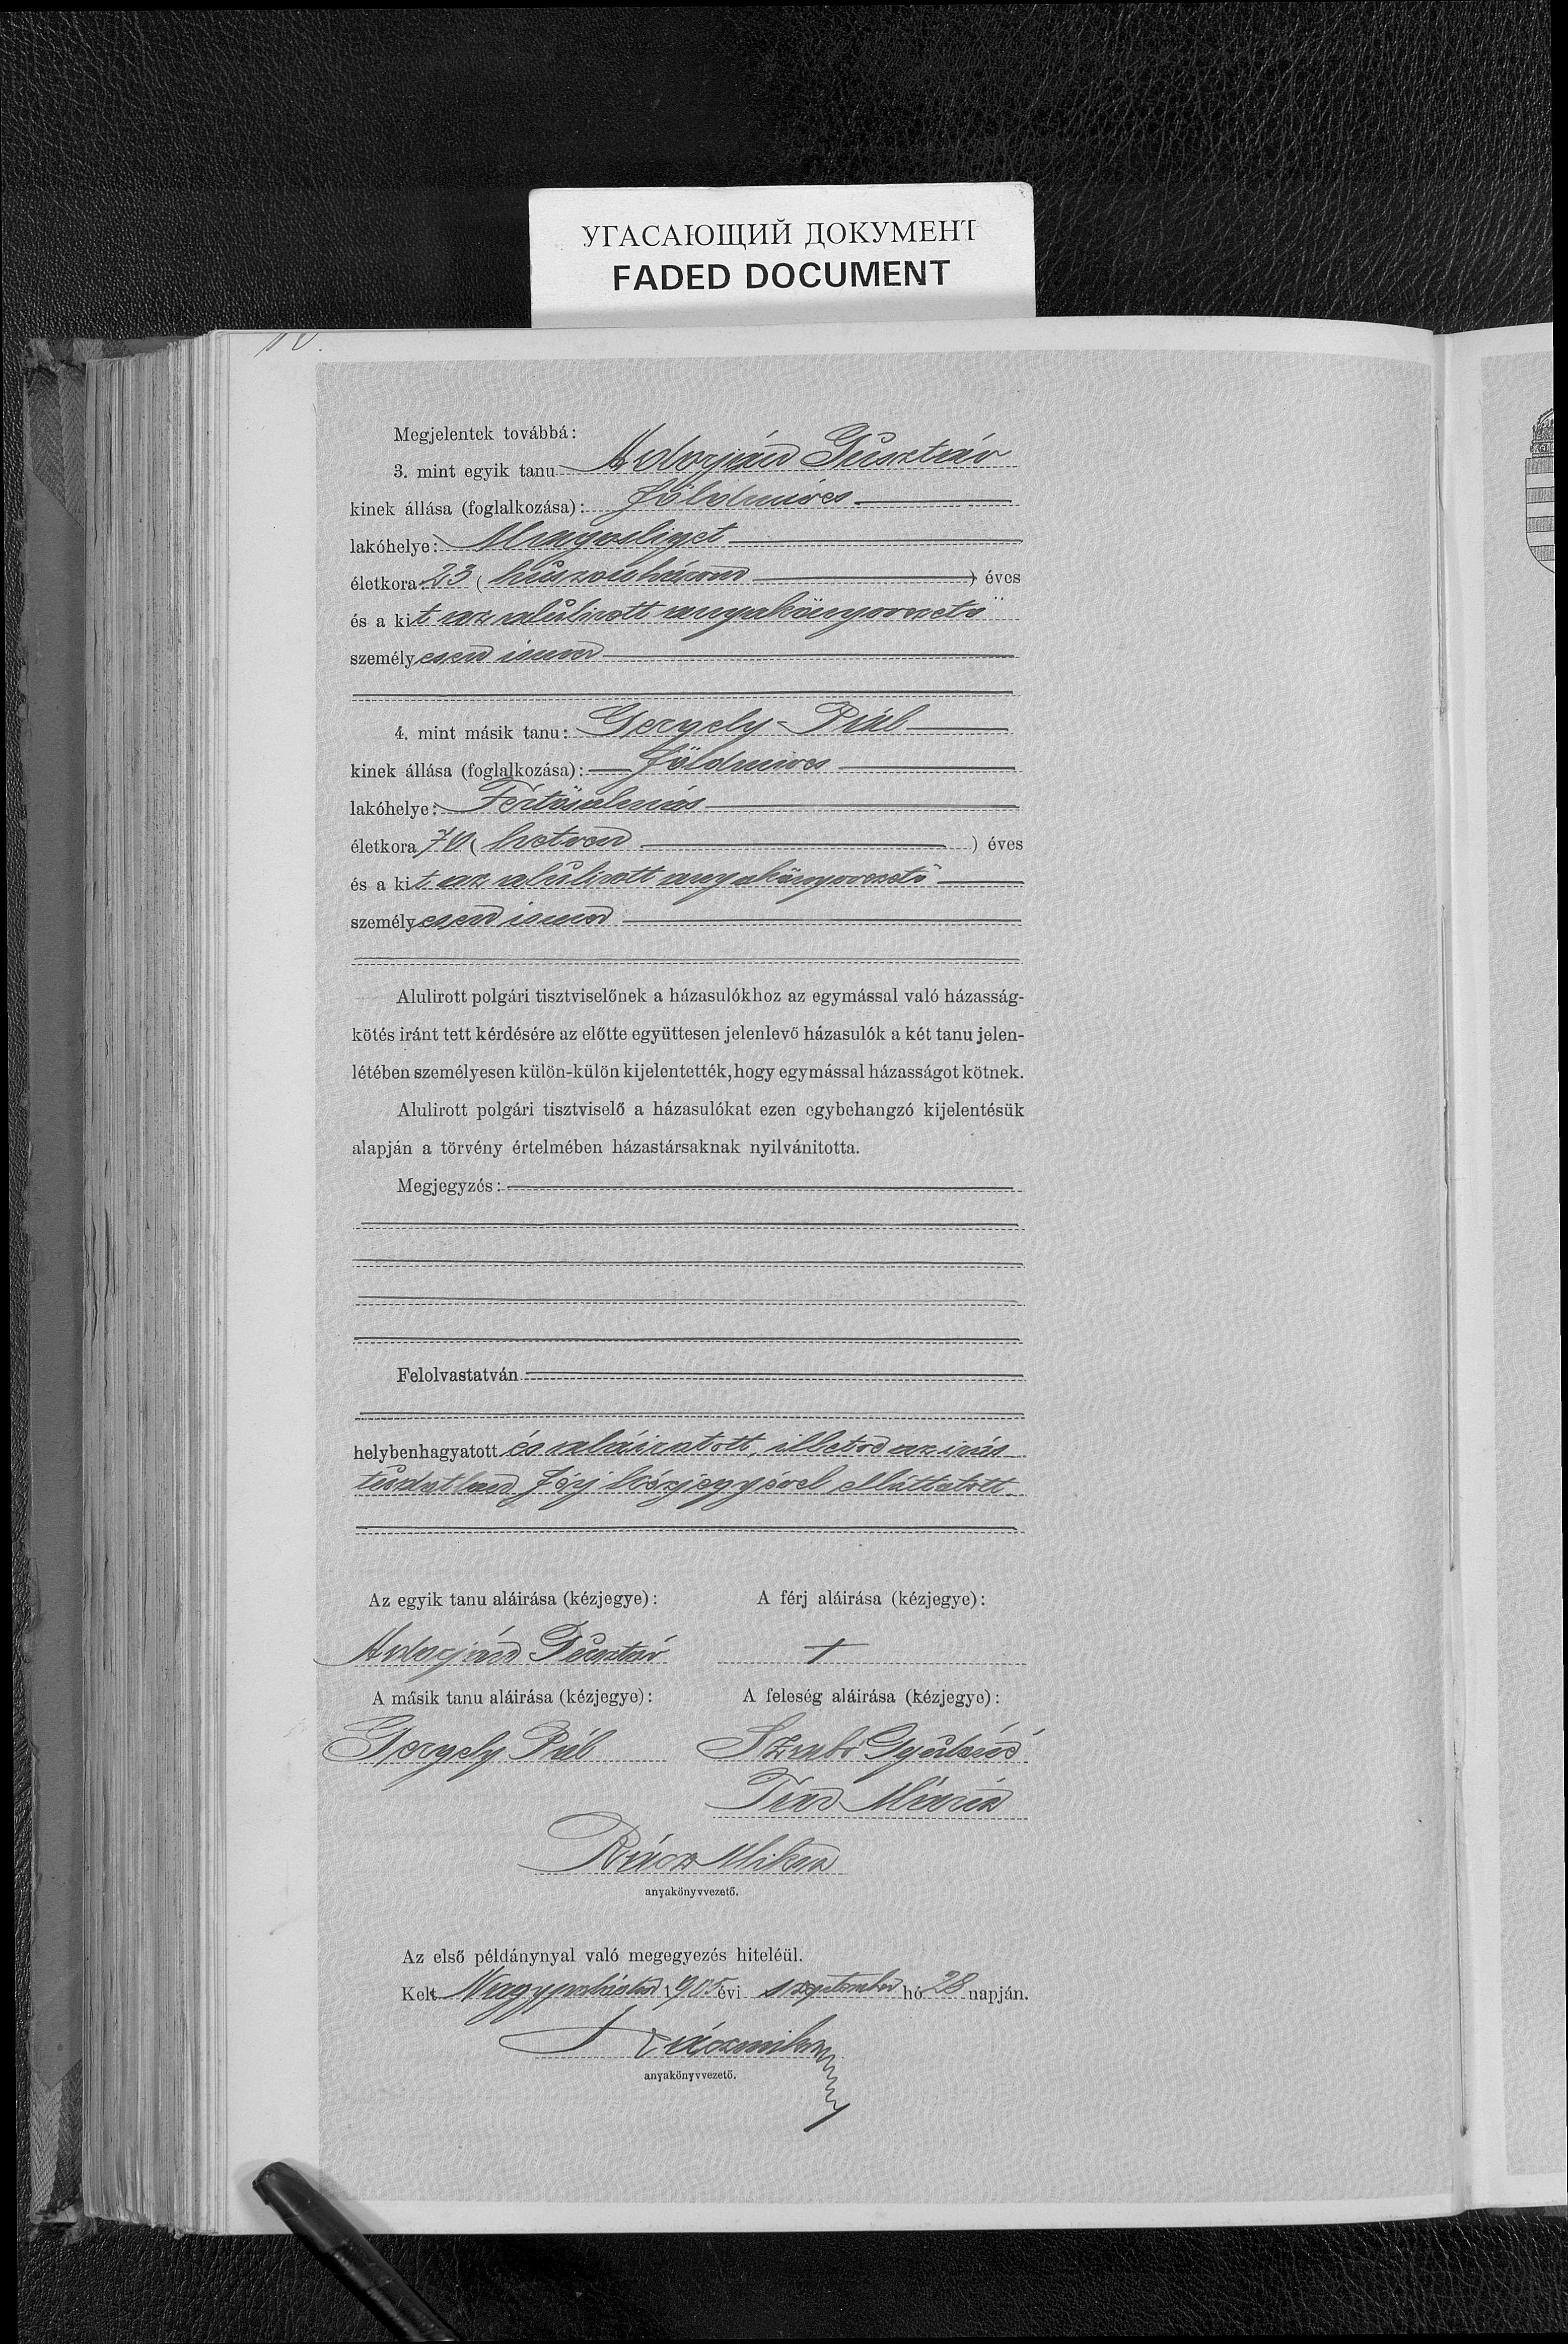 УГАСАЮЩИЙ ДОКУМЕНТ
FADED DOCUMENT
Megjelentek továbbá:
3. mint egyik tanu Adorján Gusztáv
kinek állása (foglalkozása): földmives
lakóhelye: Magosliget
életkora: 23 (huszonhárom) éves
és a kit az alulirott anyakönyvvezető
személyesen ismer
4. mint másik tanu: Gergely Pál
kinek állása (foglalkozása): földmives
lakóhelye: Fertősalmás
életkora 70 (hetven) éves
és a kit az alulirott anyakönyvvezető
személyesen ismer
Alulirott polgári tisztviselőnek a házasulókhoz az egymással való házasság-
kötés iránt tett kérdésére az előtte együttesen jelenlevő házasulók a két tanu jelen-
létében személyesen külön-külön kijelentették, hogy egymással házasságot kötnek.
Alulirott polgári tisztviselő a házasulókat ezen egybehangzó kijelentésük
alapján a törvény értelmében házastársaknak nyilvánitotta.
Megjegyzés:
Felolvastatván
helybenhagyatott és aláiratott, illetve az irás
tudatlan férj kézjegyével elláttatott
Az egyik tanu aláirása (kézjegye): A férj aláirása (kézjegye):
Adorján Gusztáv +
A másik tanu aláirása (kézjegye): A feleség aláirása (kézjegye):
Gergely Pál Szabó Gyuláné
Mária
Rácz Miksa
anyakönyvvezető.
Az első példánynyal való megegyezés hiteléül.
Kelt Nagypalád 1905 évi szeptember hó 28 napján.
Rácz Miksa
anyakönyvvezető.